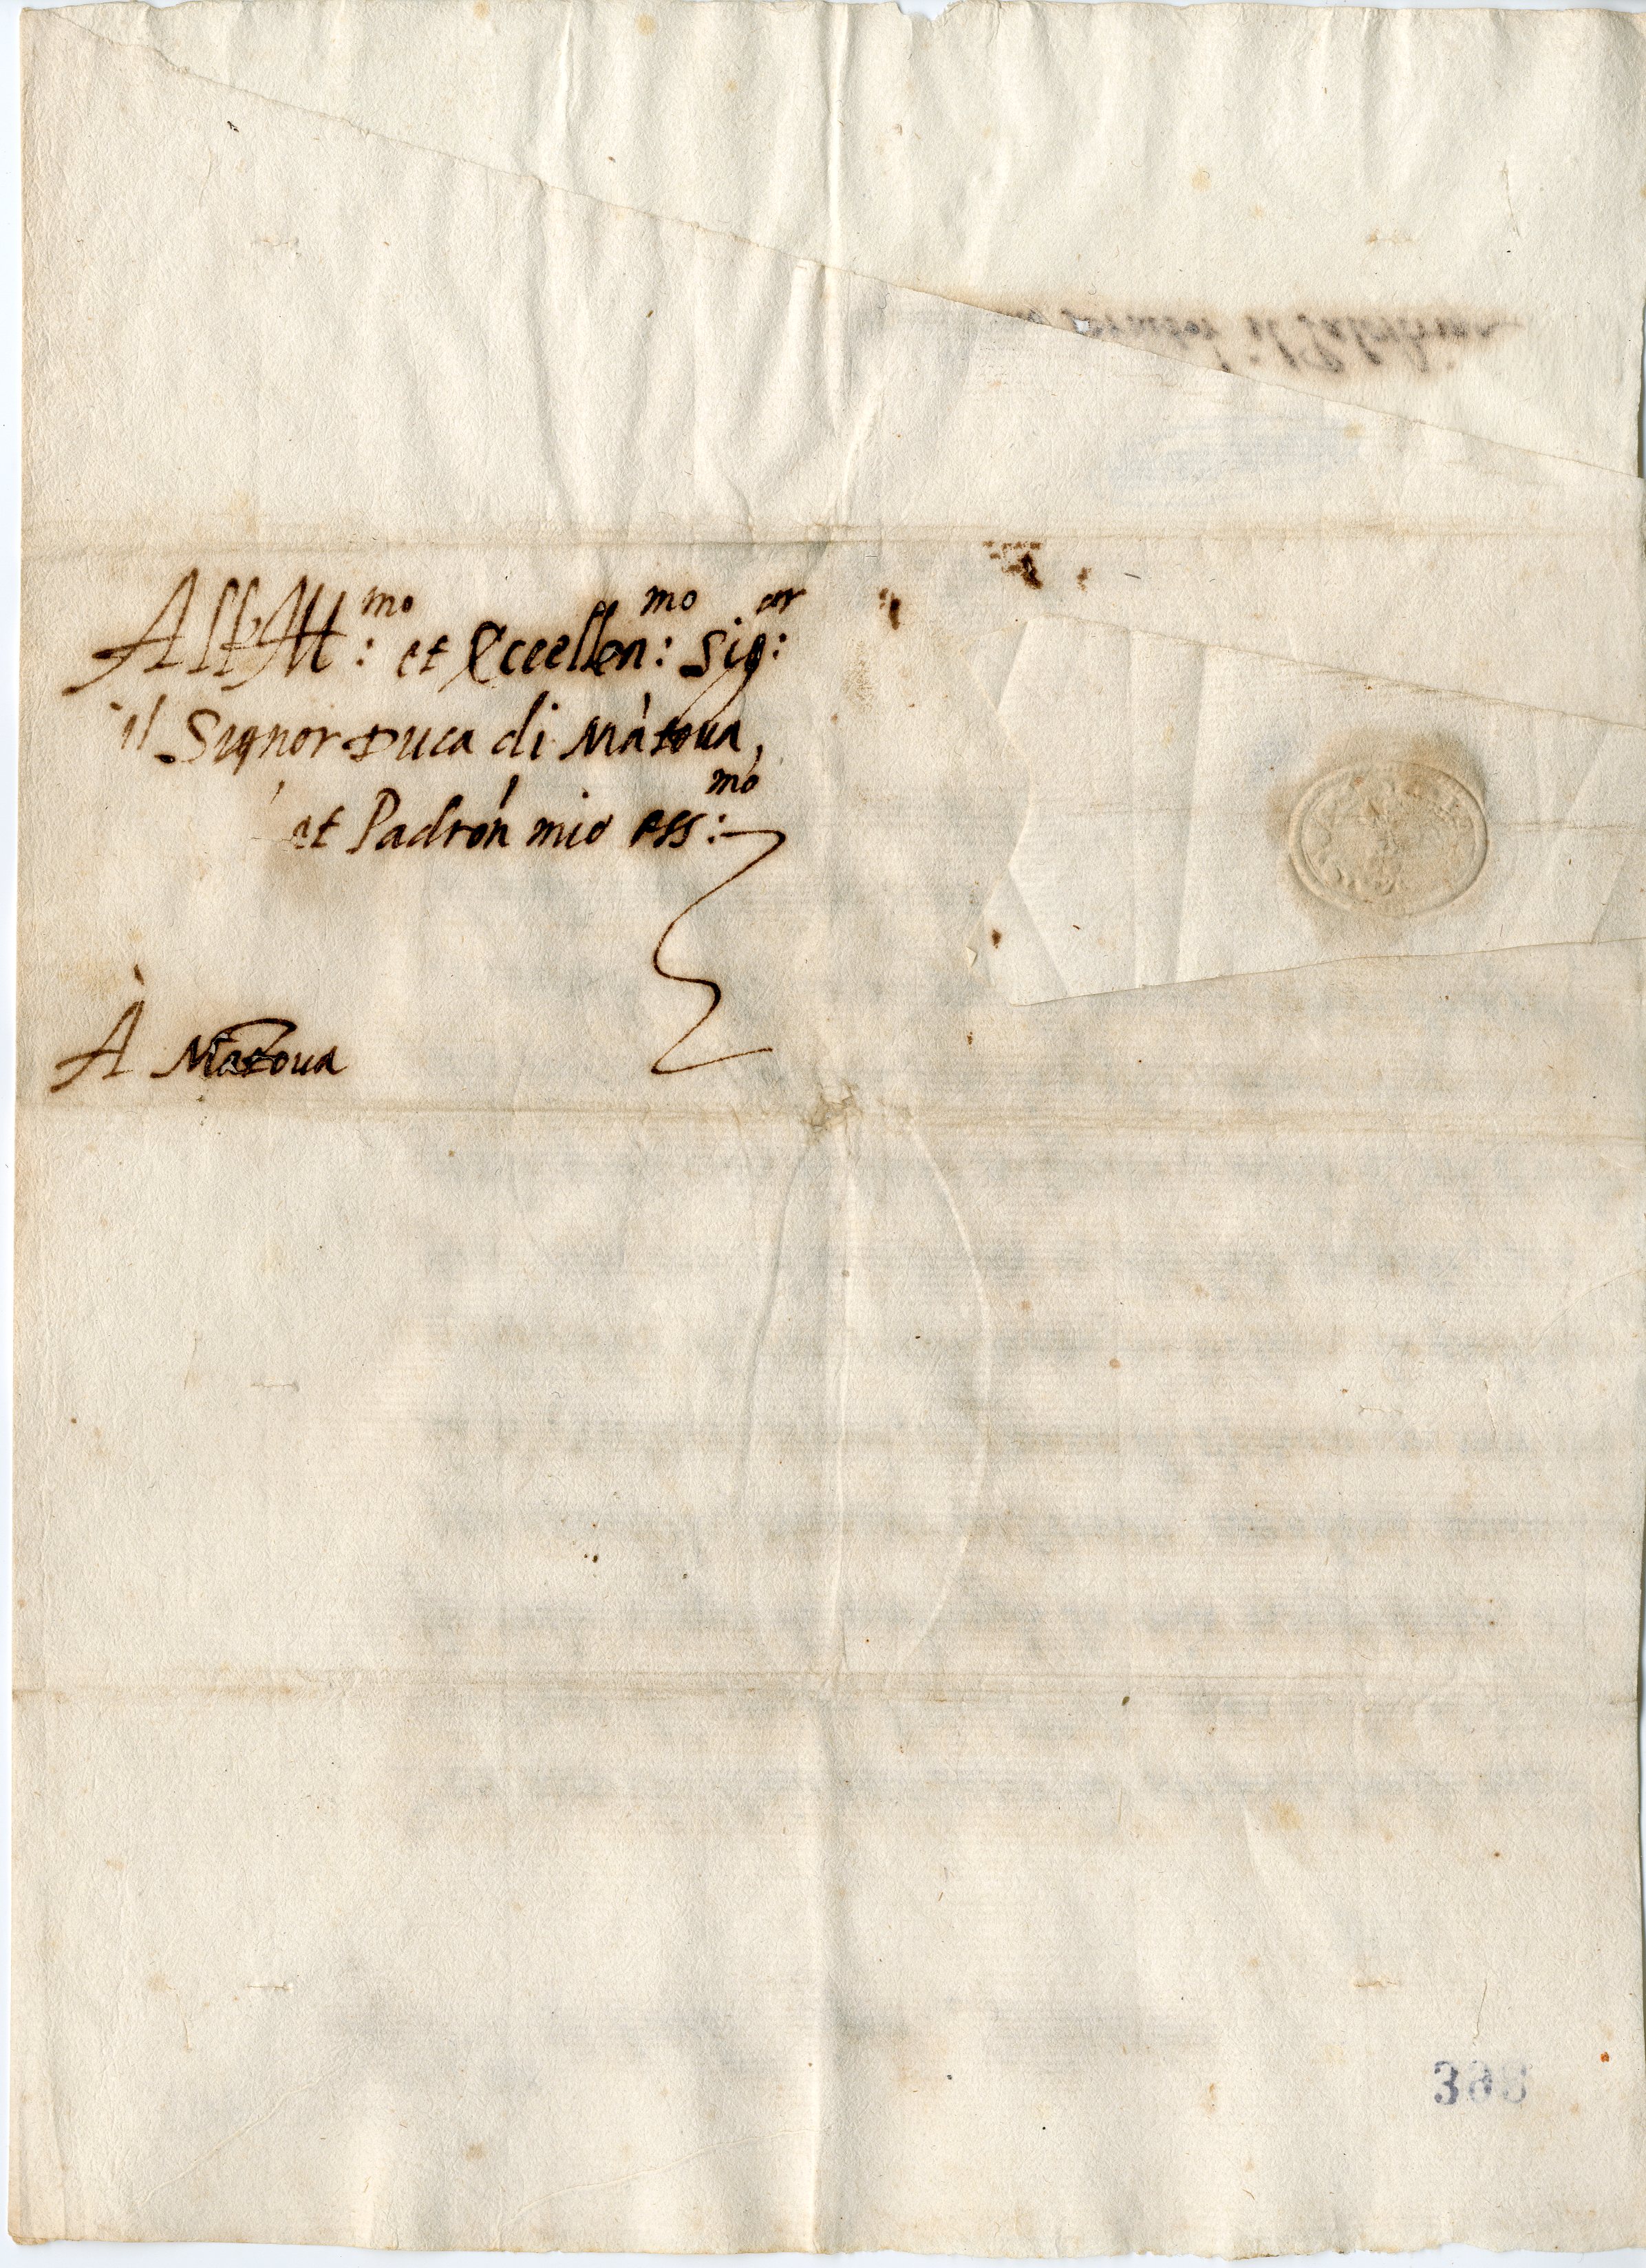 All'Ill:mo et Eccellen:mo Sig:or
il Signor Duca di Màtoua,
et Padron mio oss:mo
À Màtoua
398